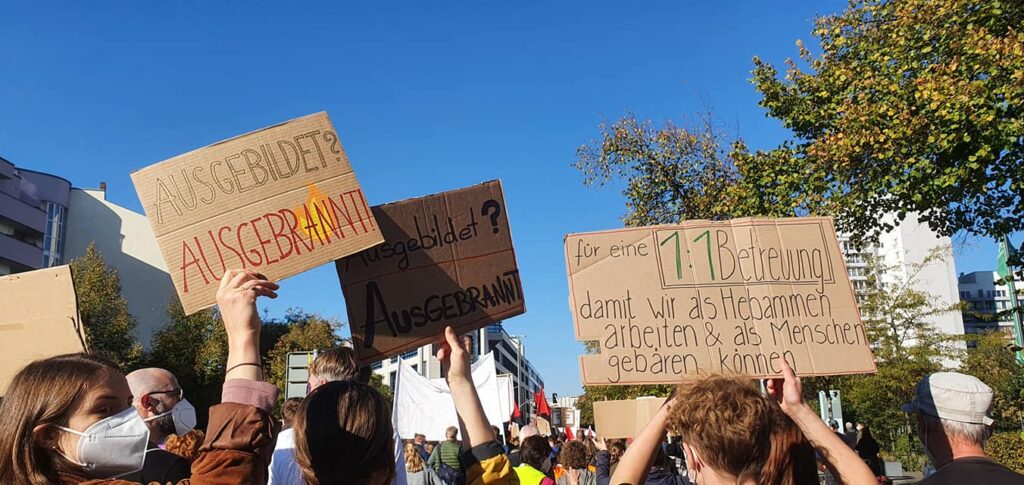 AUSGEBILDET?
AUSGEBRANNT!
Ausgebildet?
AUSGEBRANNT
für eine 1:1 Betreuung,
damit wir als Hebammen
arbeiten & als Menschen
gebären können